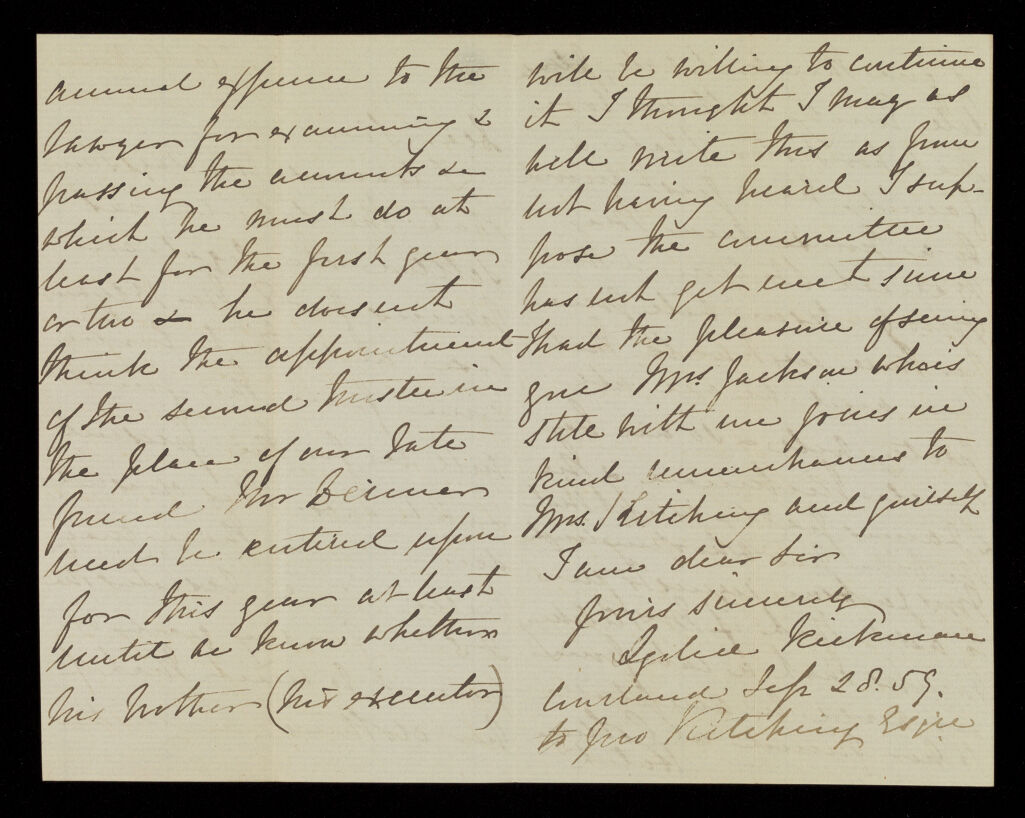 annual expence to the
lawyer for examining &
passing the accounts &c
which he must do at
least for the first year
or two & he does not
think the appointment
of the second trustee in
the place of our late
friend Mr
need be entered upon
for this year at least
until we know whether
his brother (his executor)
will be willing to continue
it I thought I may as
well write this as from
not having heard I sup-
pose the committee
has not yet met since
I had the pleasure of seeing
you Mrs. Jackson who is
still with me joins in
kind remembrances to
Mrs. Kitching and yourself
I am dear Sir
yours sincerely
Kirkman
Sep 28. 59.
to Jno Kitching Esqre